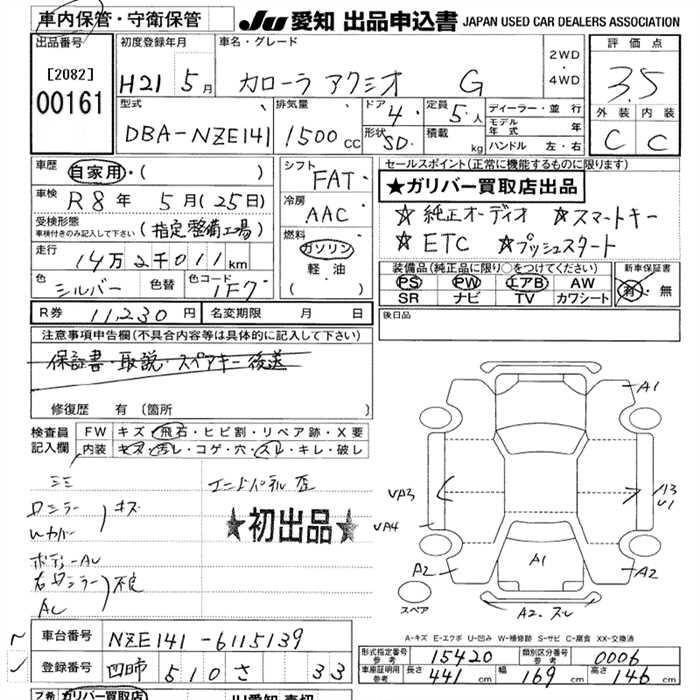 車内保管・守衛保管
JU 愛知 出品申込書 JAPAN USED CAR DEALERS ASSOCIATION
出品番号
[2082]
00161
初度登録年月
H21 5月
車名・グレード
カローラ アクシオ G
2WD
4WD
評価点
3.5
外装 内装
C C
型式
DBA-NZE141
排気量
1500cc
ドア
4
形状
SD
定員
5人
積載
kg
ディーラー・並行
モデル年式 年
ハンドル 左・右
車歴
自家用・( )
車検
R8年 5月(25日)
受検形態
車検付きのみ記入して下さい (指定整備工場)
走行
14万2千011km
色
シルバー
色替
色コード
1F7
シフト
FAT
冷房
AAC
燃料
ガソリン
軽油
( )
セールスポイント(正常に機能するものに限ります)
★ガリバー買取店出品
☆純正オーディオ ☆スマートキー
☆ETC ☆プッシュスタート
装備品(純正品に限り○をつけてください)
PS PW エアB AW
SR ナビ TV カワシート
新車保証書
有・無
R券 11,230円
名変期限 月 日
後日品
注意事項申告欄(不具合内容等は具体的に記入して下さい)
保証書・取説・スペアキー後送
修復歴 有(箇所 )
検査員記入欄
FW キズ・飛石・ヒビ割・リペア跡・X要
内装 キズ・汚レ・コゲ・穴・スレ・キレ・破レ
ミミ
キズ
ボディーAC
不良
AC
★初出品★
A1
UA3
UA4
U1
A2
A1
A2
A2.スレ
スペア
A-キズ E-エクボ U-凹み W-補修跡 S-サビ C-腐食 XX-交換済
車台番号 NZE141-6115139
登録番号 四日市 510 さ 33
形式指定番号
参考
15420
類別区分番号
参考
0006
車庫証明用
参考
長さ 441cm 幅 169cm 高さ 146cm
ガリバー買取店
JU愛知